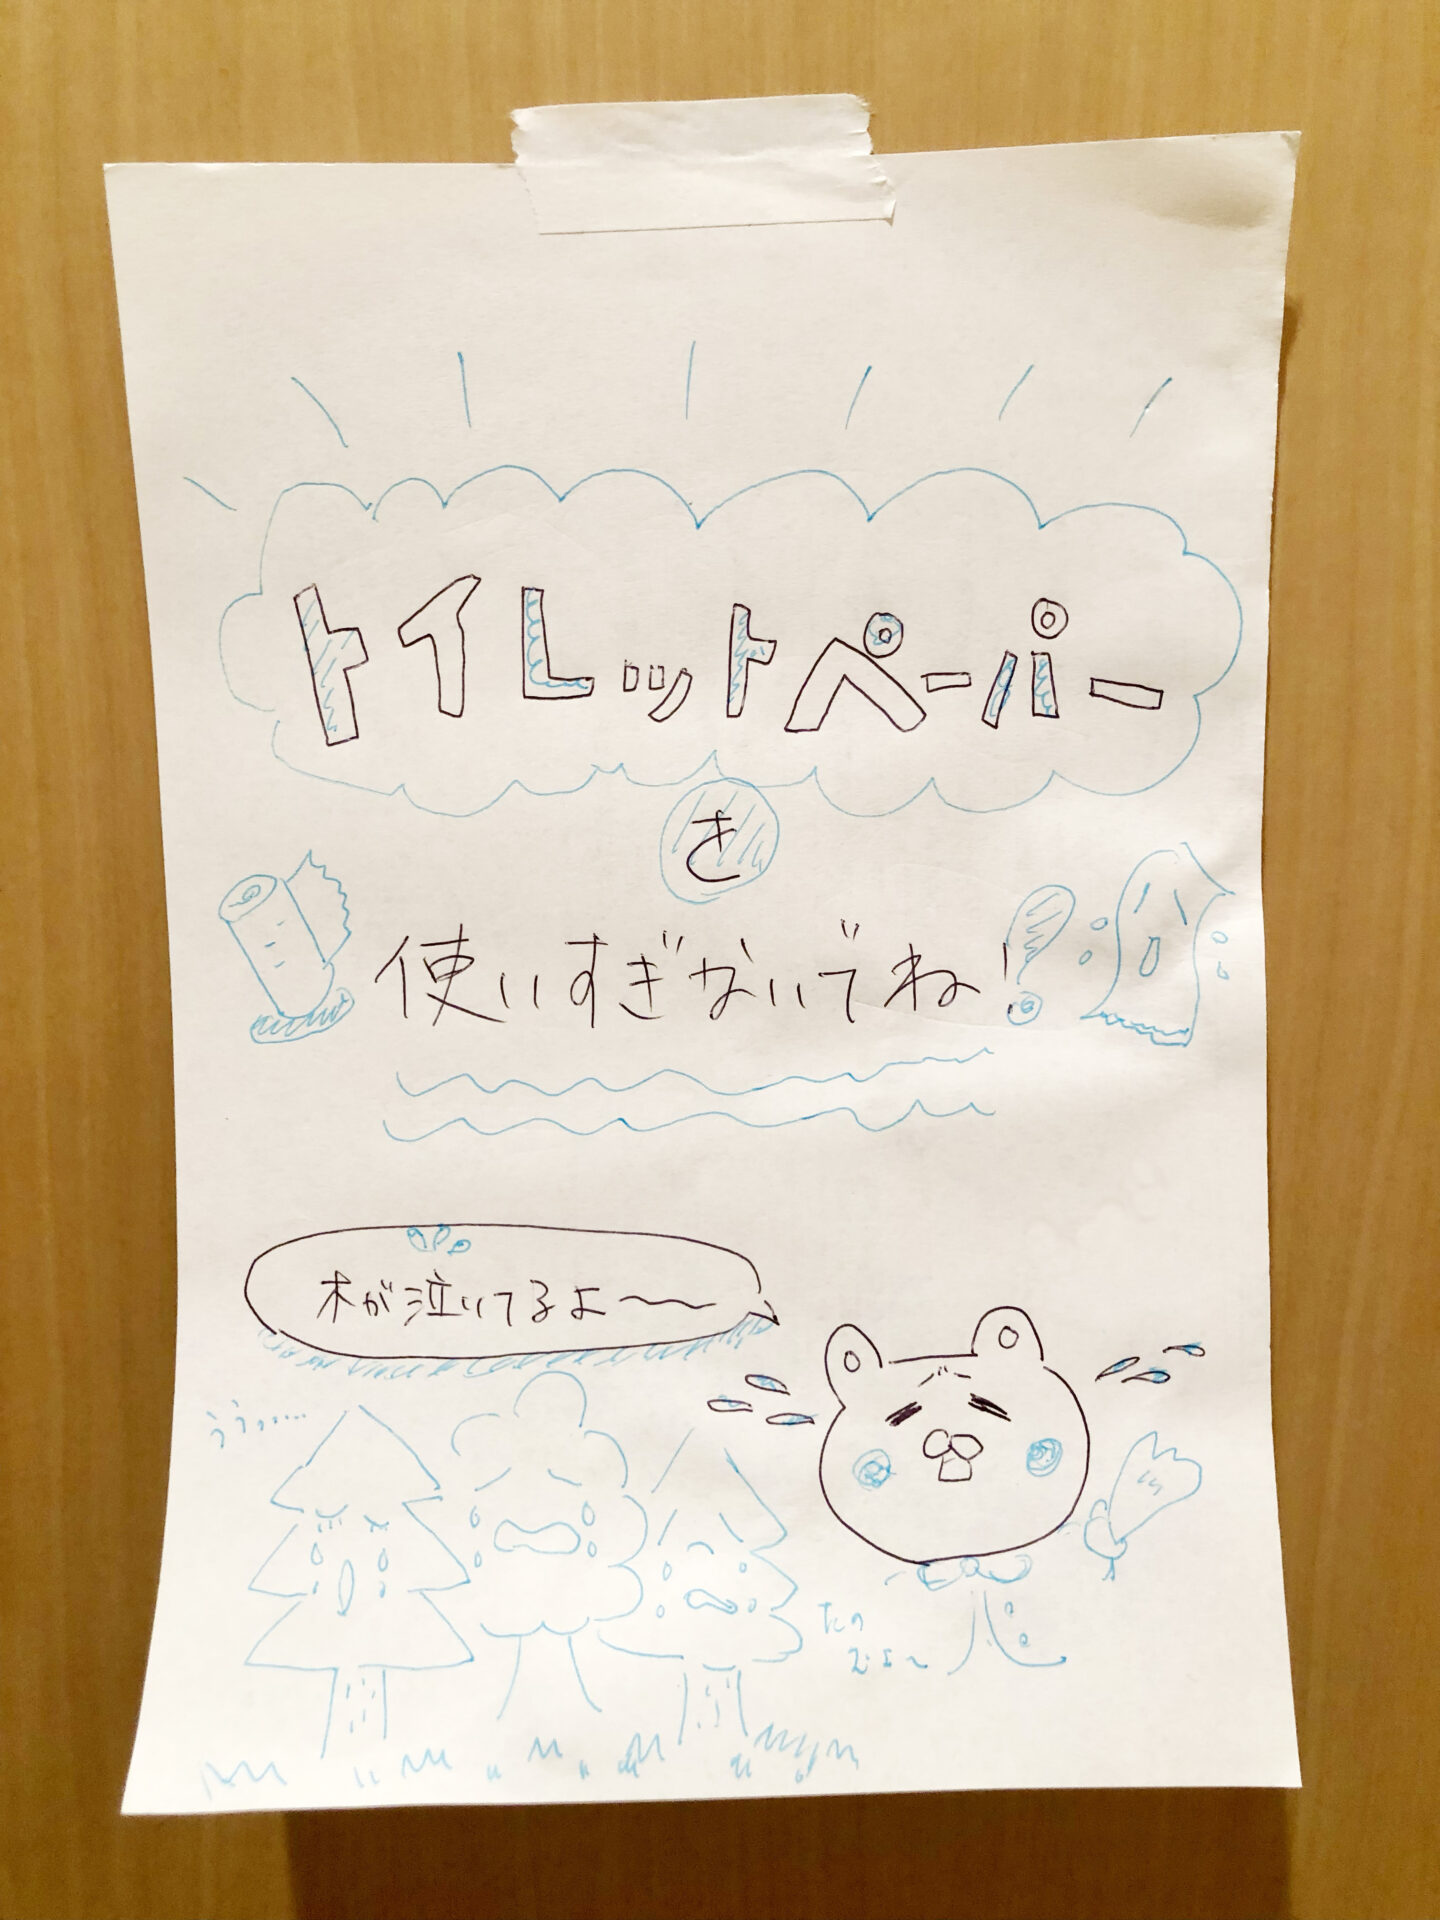 トイレットペーパー
を
使いすぎないでね!
木が泣いてるよ〜〜
うぅっ…
たの
むよ〜